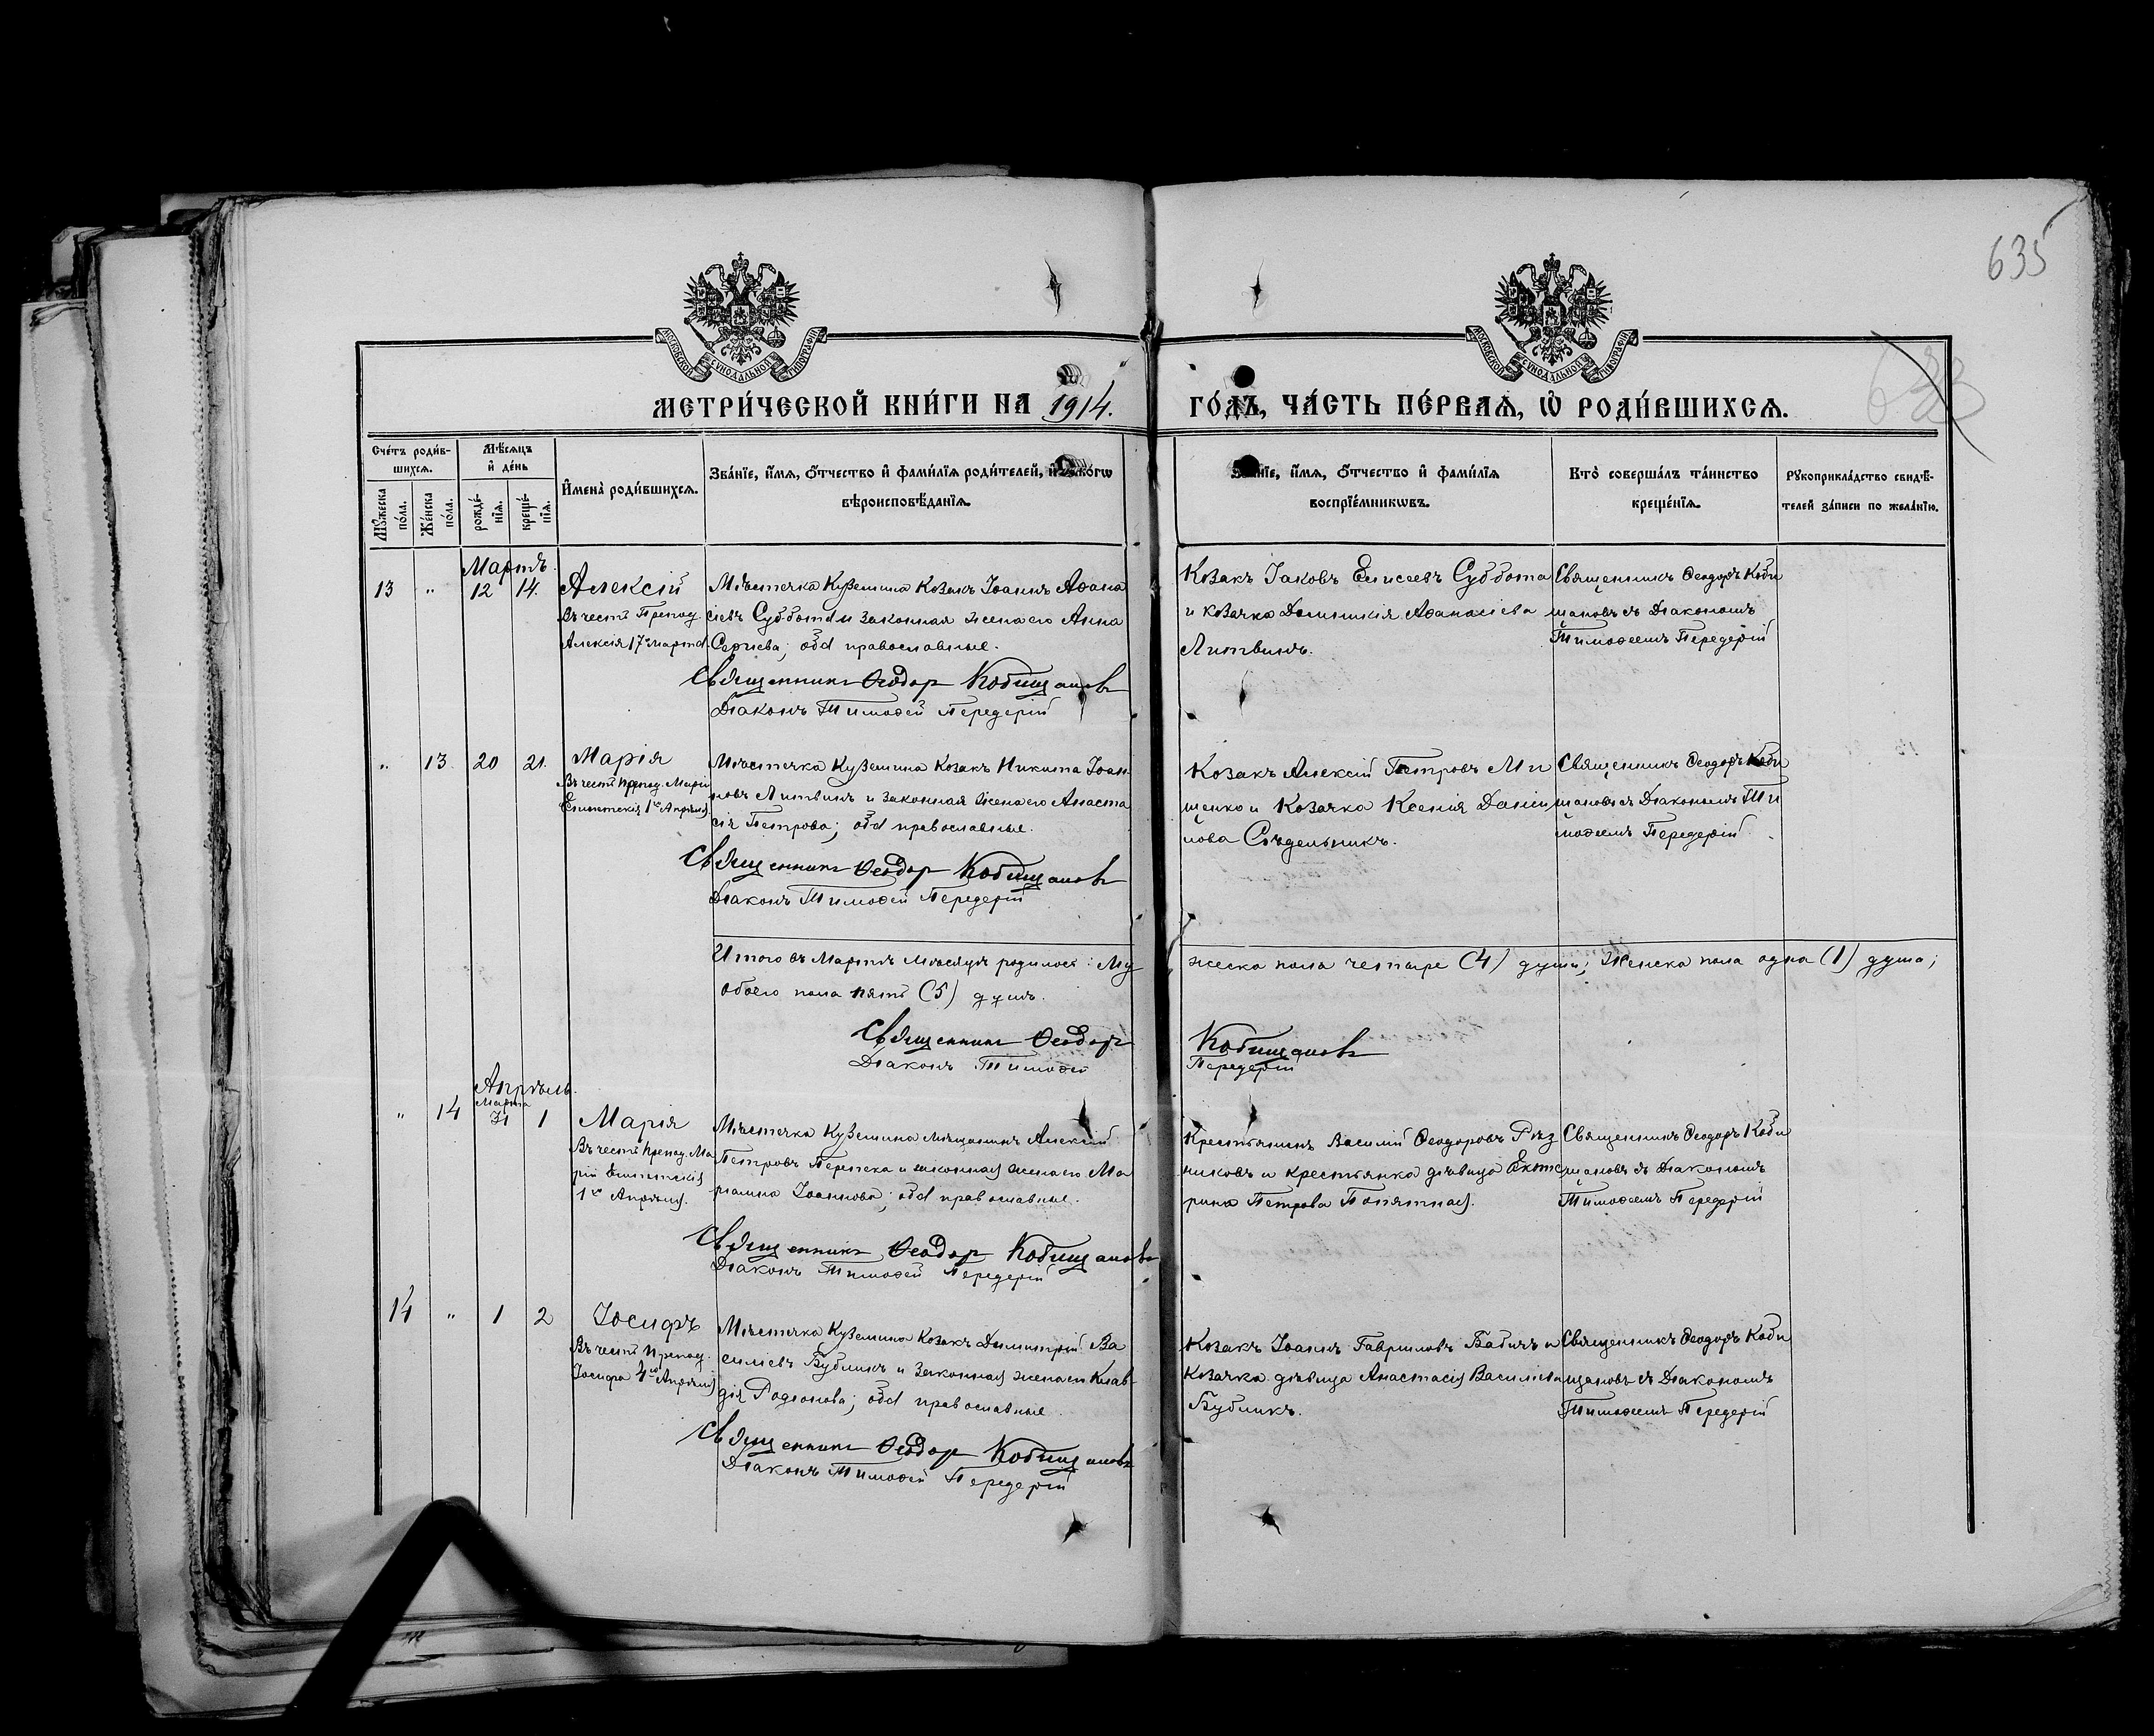 635
МОСКОВСКОЙ СѴНОДАЛЬНОЙ ТИПОГРАФІИ
МОСКОВСКОЙ СѴНОДАЛЬНОЙ ТИПОГРАФІИ
МЕТРИ́ЧЕСКОЙ КНИ́ГИ НА 1914. ГО́ДЪ, ЧА́СТЬ ПЕ́РВАѦ, Ѡ҆ РОДИ́ВШИХСѦ.
Сче́тъ роди́в-
шихсѧ.
Мꙋ́жеска
по́ла.
Же́нска
по́ла.
Мѣ́сѧцъ
и҆ де́нь
рожде́-
нїѧ.
креще́-
нїѧ.
И҆мена̀ роди́вшихсѧ.
Зва́нїе, и҆́мѧ, ѻ҆́тчество и҆ фами́лїѧ роди́телей, и҆ како́гѡ
вѣроисповѣ́данїѧ.
Зва́нїе, и҆́мѧ, ѻ҆́тчество и҆ фами́лїѧ
воспрїе́мникѡвъ.
Кто̀ соверша́лъ та́инство
креще́нїѧ.
Рꙋкоприкла́дство свидѣ́-
телей за́писи по жела́нїю.
Мартъ.
13 " 12 14. Алексій
Въ честь Препод
Алексія 17го марта.
Мѣстечка Куземина Козакъ Іоаннъ Аѳана
сіевъ Суббота и законная жена его Анна
Сергіева; оба православные.
Священникъ Ѳеодоръ Кобищановъ
Діаконъ Тимоѳей Передерій
Козакъ Іаковъ Елисеевъ Суббота
и козачка Домникія Аѳанасіева
Литвинъ.
Священникъ Ѳеодоръ Коби
щановъ съ Діакономъ
Тимоѳеемъ Передерій
" 13. 20 21. Марія
Въ честь Препод. Маріи
Египетскія 1го Апрѣля
Мѣстечка Куземина Козакъ Никита Іоан-
новъ Литвинъ и законная жена его Анаста
сія Петрова; оба православные.
Священникъ Ѳеодоръ Кобищановъ
Діаконъ Тимоѳей Передерій
Козакъ Алексій Петровъ Ми
щенко и Козачка Ксенія Дании
лова Сѣдельникъ.
Священникъ Ѳеодоръ Коби
щановъ съ Діакономъ Ти
моѳеемъ Передерій
Итого въ Мартѣ мѣсяцѣ родилось: Му
жеска пола четыре (4) души; Женска пола одна (1) душа;
Обоего пола пять (5) душъ.
Священникъ Ѳеодоръ Кобищановъ
Діаконъ Тимоѳей Передерій
Апрѣль.
Марта
" 14 31 1 Марія
Въ честь Препод. Ма
ріи Египетскія
1го Апрѣля.
Мѣстечка Куземина мѣщанинъ Алексій
Петровъ Перепека и законная жена его Ма
ріамна Іоаннова; оба православные.
Священникъ Ѳеодоръ Кобищановъ
Діаконъ Тимоѳей Передерій
Крестьянинъ Василій Ѳеодоровъ Рѣз
никовъ и крестьянка дѣвица Екате
рина Петрова Попятная.
Священникъ Ѳеодоръ Коби
щановъ съ Діакономъ
Тимоѳеемъ Передерій
14 " 1 2 Іосифъ
Въ честь Препод.
Іосифа 4го Апрѣля
Мѣстечка Куземина Козакъ Димитрій Ва
силіевъ Бубликъ и законная жена его Клав-
дія Родіонова; оба православные.
Священникъ Ѳеодоръ Кобищановъ
Діаконъ Тимоѳей Передерій
Козакъ Іоаннъ Гавриловъ Бабичъ и
Козачка дѣвица Анастасія Василіева
Бубликъ.
Священникъ Ѳеодоръ Коби
щановъ съ Діакономъ
Тимоѳеемъ Передерій